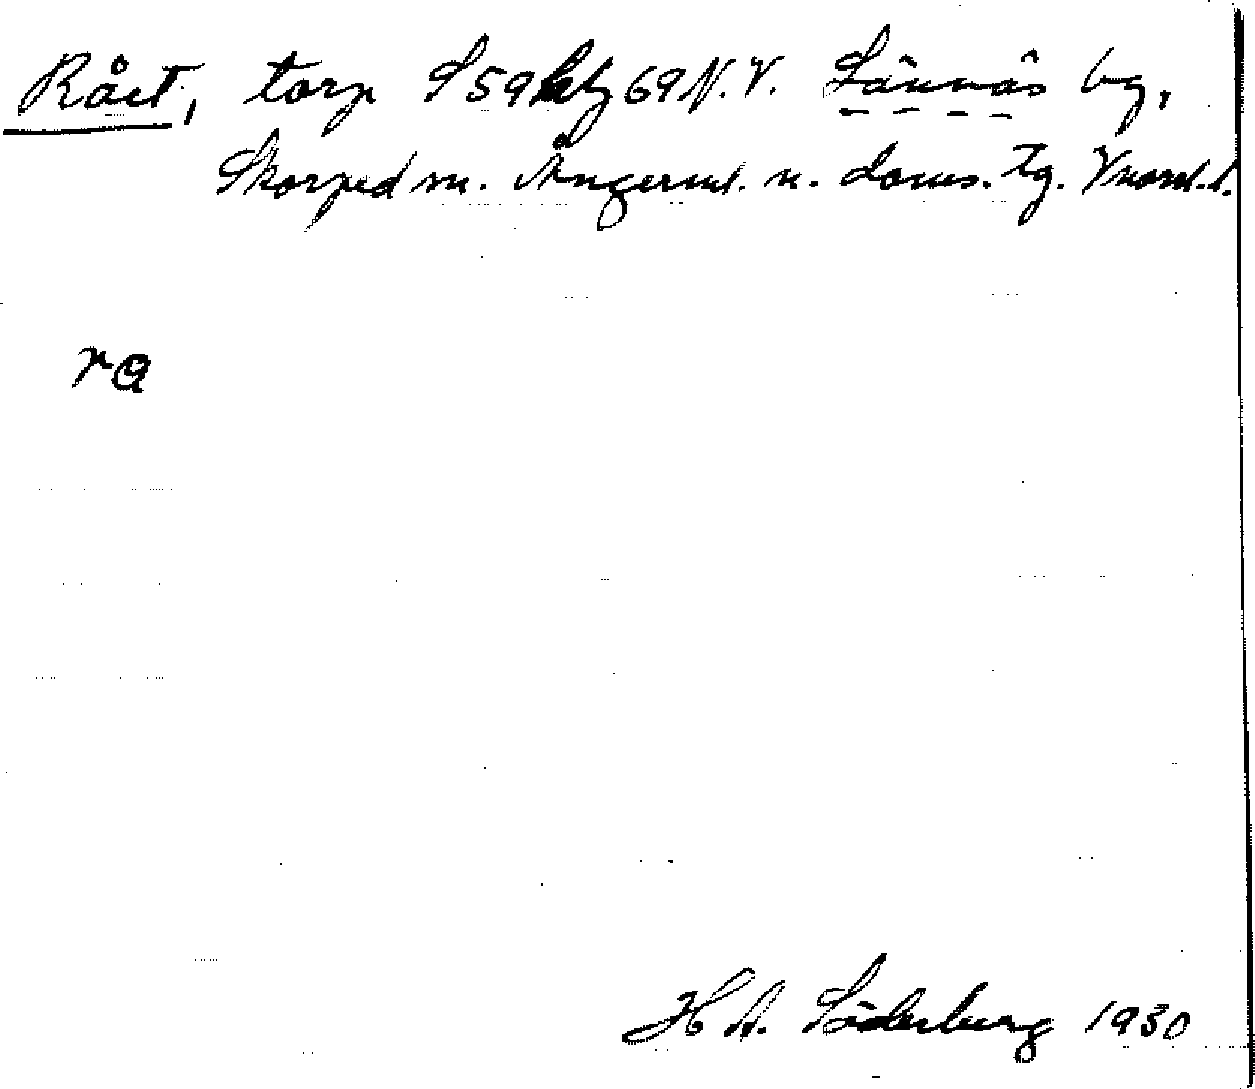 Rået, torp S59 69 N.V. Lännäs bg,
Skorped sn. Ångerml. n. doms. tg. Vnorrl.l.
rɑ
H A. Söderberg 1930